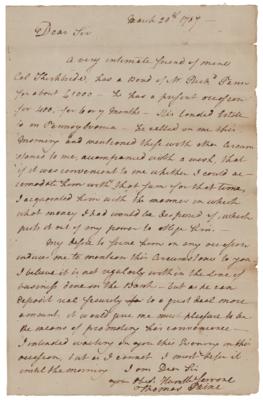 March 20th 1787
Dear Sir
A very intimate friend of mine
Col Kirkbride, has a Bond of Mr Rich.d Penn
for about £1000 – He has a present occasion
for 400, for 6 or 7 Months – His landed Estate
is in Pennsylvania – He called on me this
Morning and mentioned these with other Circum
stances to me, accompanied with a wish, that
if it was convenient to me whether I could ac
comodate him with that sum for that time,
I acquainted him with the manner in which
what money I had would be disposed of, which
puts it out of my power to oblige him.
My desire to serve him on any occasion
induce me to mention this Circumstance to you
I believe it is not regularly within the line of
business done on the Bank – but as he can
deposit real security for to a great deal more
amount, it would give me much pleasure to be
the means of promoting his convenience –
I intended waiting on you this Evening on this
occasion, but as I cannot I must defer it
until the morning I am Dear Sir
your Obt. Humble Servant
Thomas Paine